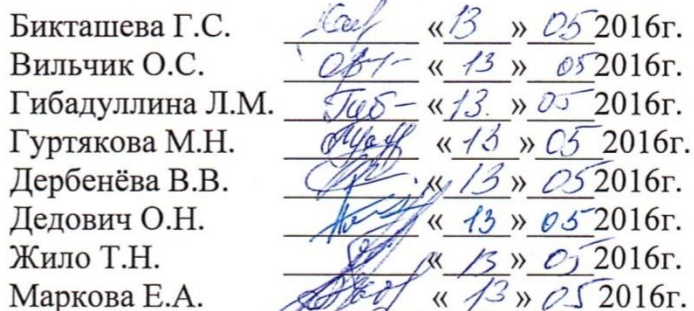 Бикташева Г.С. «13» 05 2016г.
Вильчик О.С. «13» 05 2016г.
Гибадуллина Л.М. Гиб «13.» 05 2016г.
Гуртякова М.Н. «13» 05 2016г.
Дербенёва В.В. «13» 05 2016г.
Дедович О.Н. «13» 05 2016г.
Жило Т.Н. «13» 05 2016г.
Маркова Е.А. «13» 05 2016г.